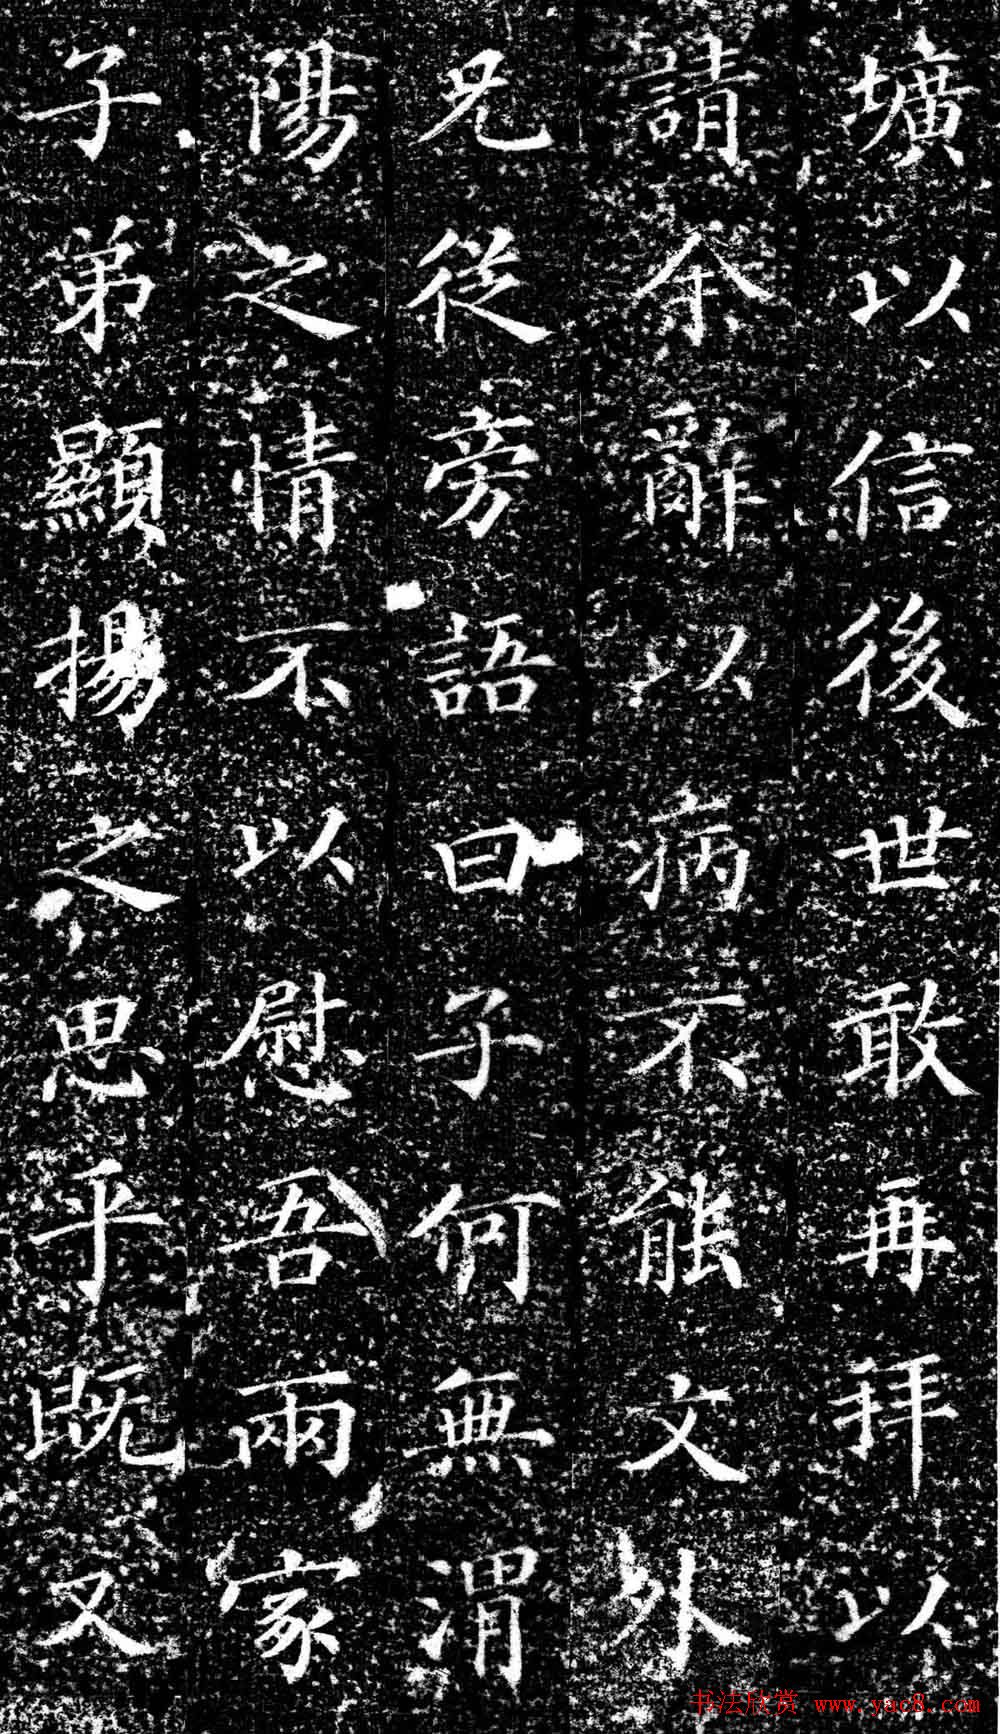 壙以信後世敢再拜以
請余辭以病不能文外
兄從旁語曰子何無渭
陽之情不以慰吾兩家
子弟顯揚之思乎既又
书法欣赏 www.yac8.com